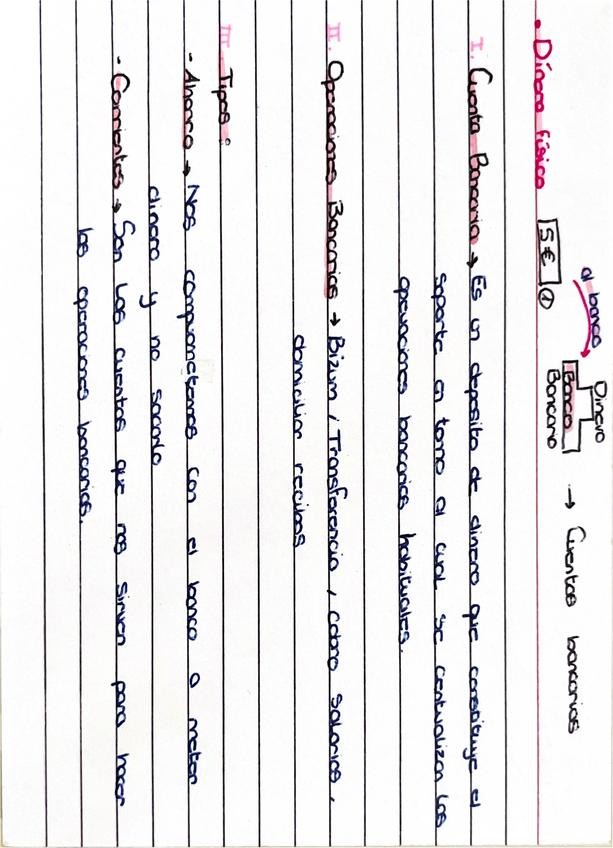 Dinero
al banco
· Dinero físico 5€ ① Banco → Cuentas bancarias
Bancario
I. Cuenta Bancaria → Es un deposito de dinero que constituye el
soporte en torno al cual se centralizan los
operaciones bancarias habituales.
II. Operaciones Bancarias → Bizum, Transferencia, cobro salarios,
domiciliar recibos
III. Tipos:
- Ahorro → Nos comprometemos con el banco a meter
dinero y no sacarlo
- Corrientes → Son las cuentas que nos sirven para hacer
las operaciones bancarias.